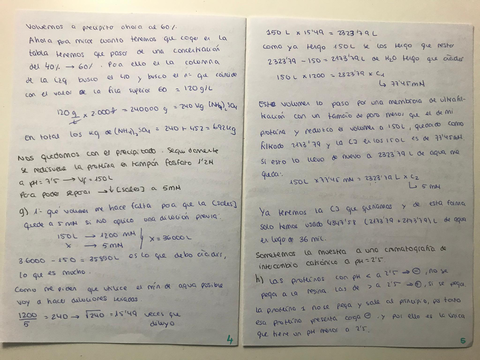 Volvemos a precipito ahora al 60%
Ahora para mirar cuanto tenemos que coger en la
tabla. Tenemos que pasar de una concentración
del 40% → 60%. Para ello en la columna
de la izq busco el 40 y busco el nº que coincide
con el valor de la fila superior 60 = 120 g/L
120 g/L x 2000 = 240000 g = 240 kg (NH4)2SO4
En total los kg de (NH4)2SO4 = 240 + 452 = 692 kg
Nos quedamos con el precipitado. Seguidamente
se redisuelve la proteína en tampón fosfato 1'2M
a pH = 7'5 → Vf = 150L
Para poder seguir → ↓ [sales] a 5mM
g) 1. qué volumen me hace falta para que la [sales]
quede a 5mM si no aplico una dilución previa
150L → 1200 mM
X → 5 mM
X = 36000L
36000 - 150 = 35850L es lo que debo añadir,
lo que es mucho.
Como me piden que utilice el mín de agua posible
voy a hacer diluciones
1200/5 = 240 → √240 = 15'49 veces que
diluyo
4
150 L x 15'49 = 2323'79 L
como ya tengo 150L se los tengo que restar
2323'79 - 150 = 2173'79L de H2O tengo que añadir
150L x 1200 = 2323'79 x C2
↳ 77'45 mM
Este volumen lo paso por una membrana de ultrafil-
tración con un tamaño de poro menor que es de mi
proteína y reduzco el volumen a 150L, quedando como
filtrado 2173'79 y la C2 es los 150L es de 77'45mM
Si esto lo llevo de nuevo a 2323'79 L de agua me
queda:
150L x 77'45 mM = 2323'79L x C2
↳ 5 mM
Ya tenemos la C3 que queríamos y de esta forma
solo hemos usado 4347'58 (2173'79 + 2173'79) L de agua
en lugar de 36 mil.
Sometemos la muestra a una cromatografía de
intercambio catiónico a pH = 7'5
h) Las proteínas con pH < a 7'5 → ⊖, no se
pega a la resina, las de > a 7'5 → ⊕, si se pega
La proteína no se pega y sale al principio, por tanto
esa proteína presenta carga ⊖ y por ello es la única
que tiene un pH menor a 7'5.
5